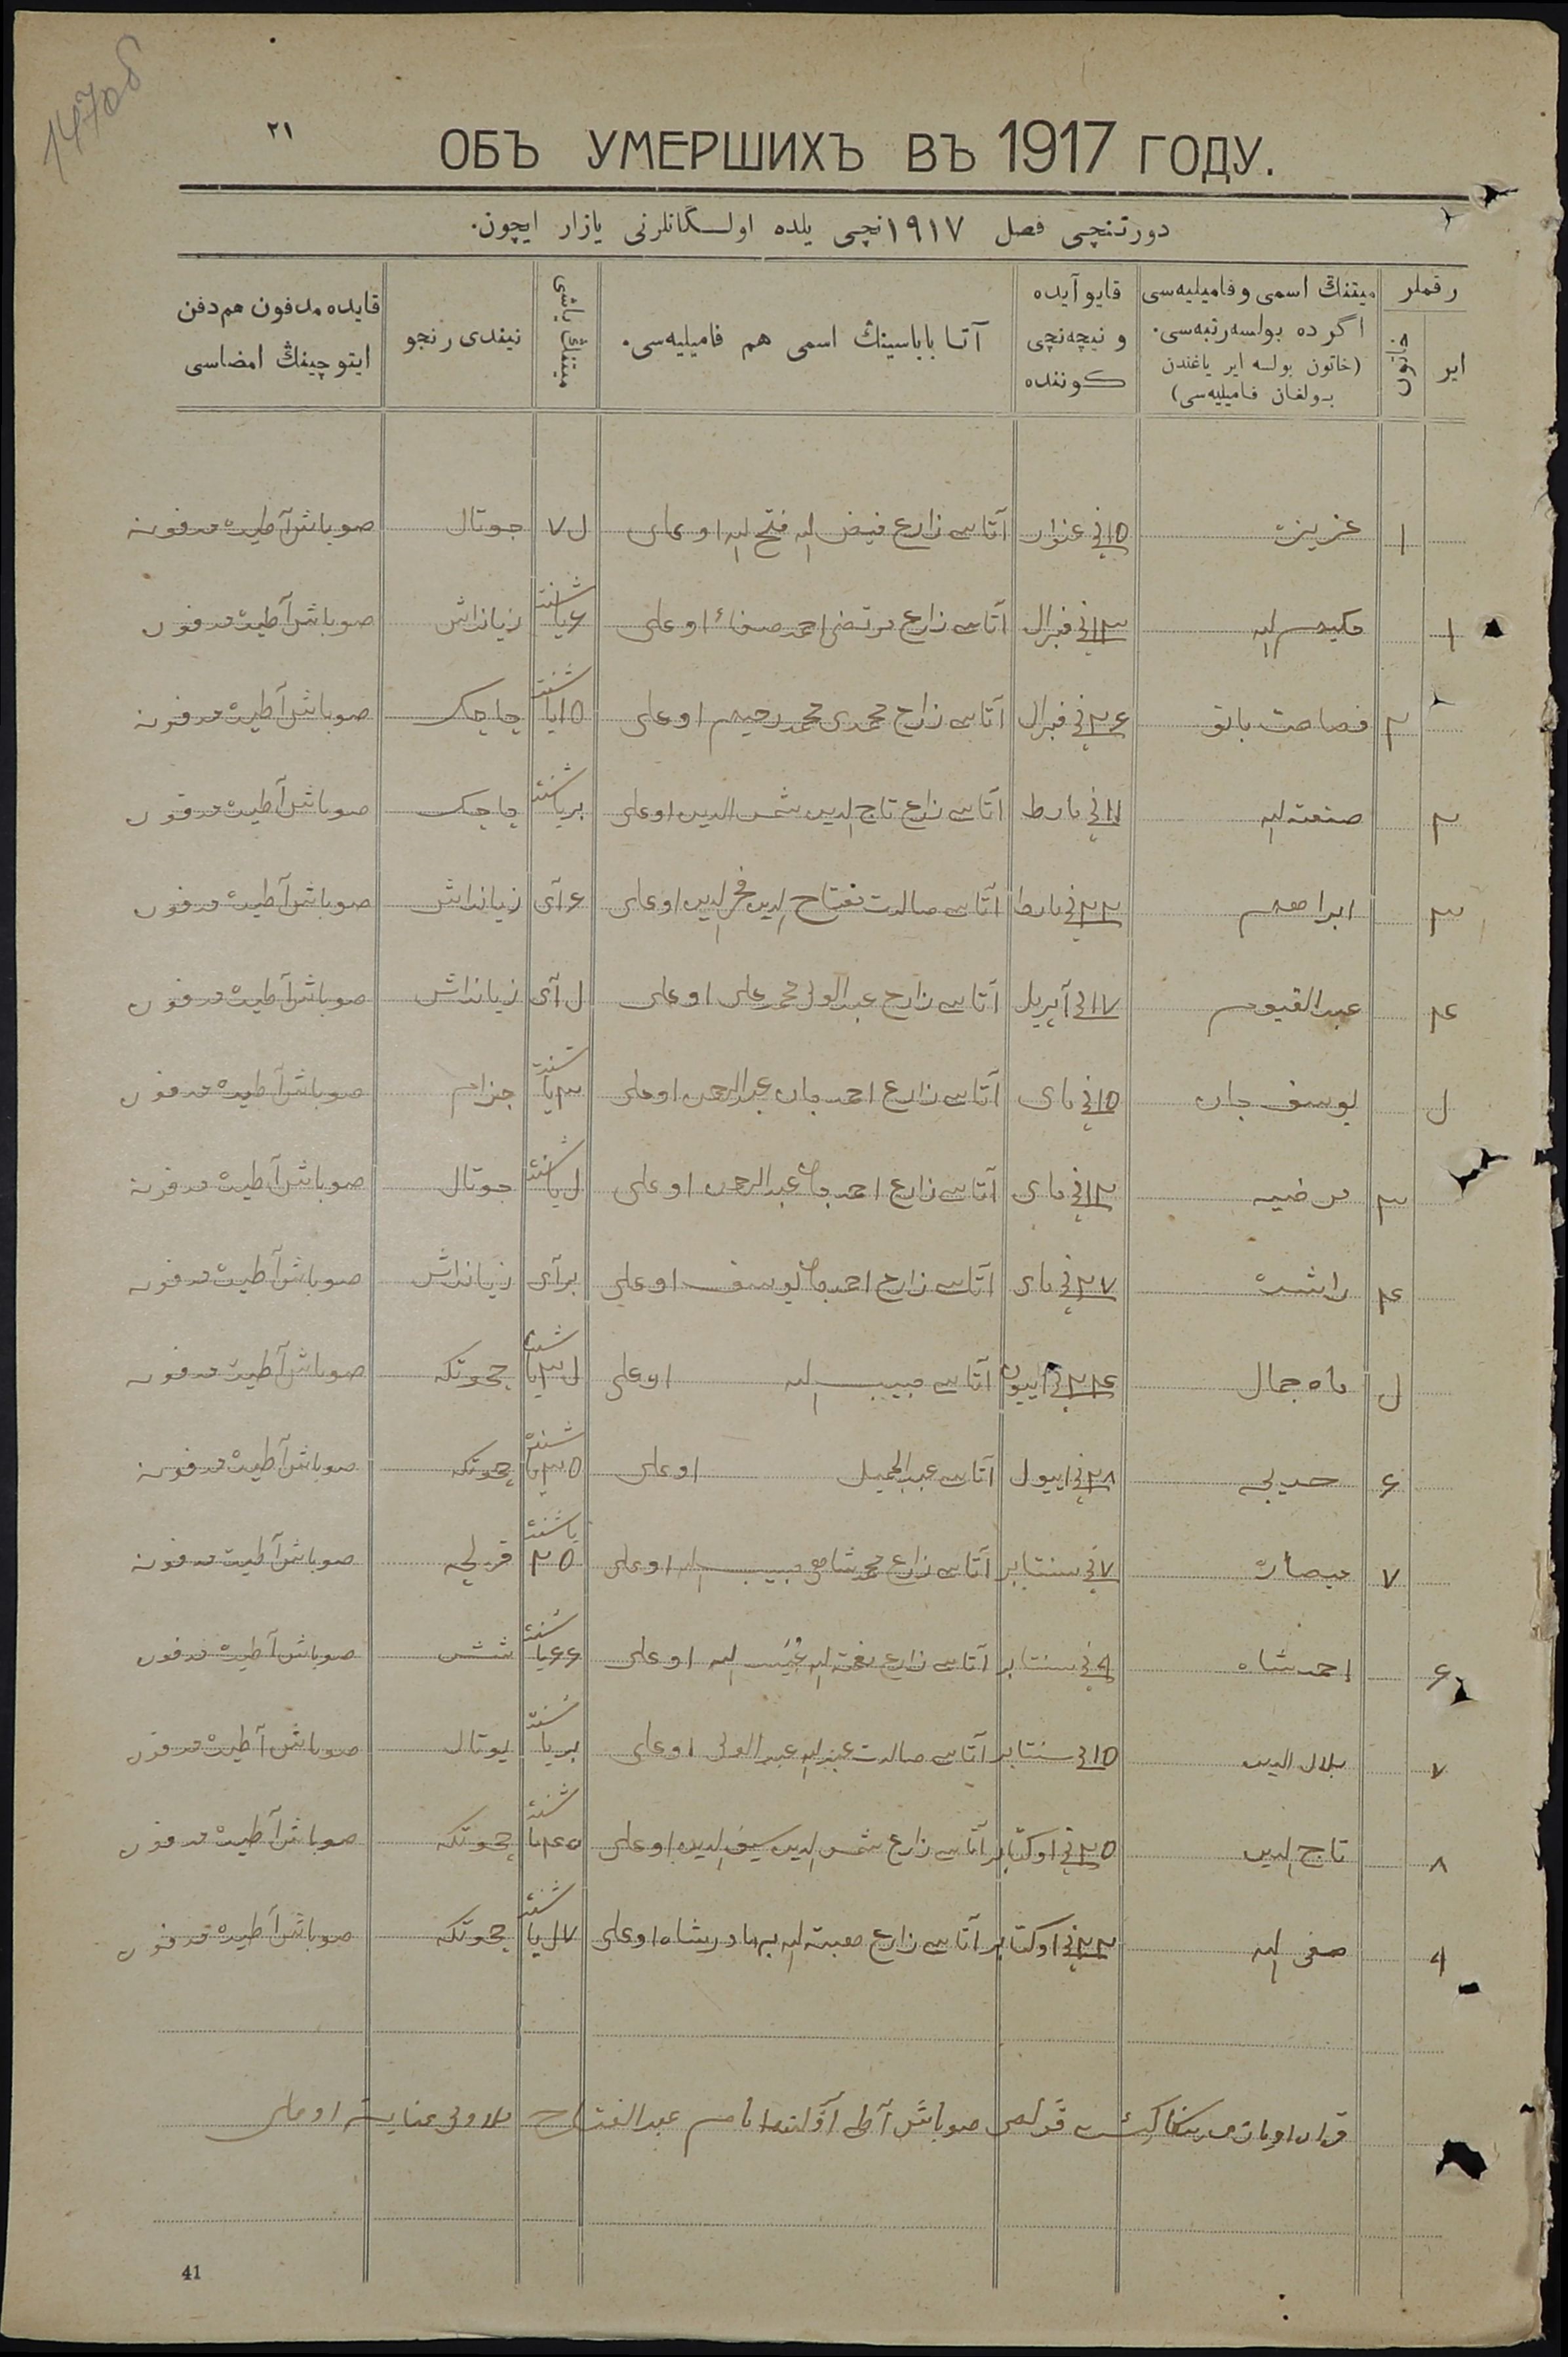 1470б
٢١
ОБЪ УМЕРШИХЪ ВЪ 1917 ГОДУ.
دورتنچی فصل ١٩١٧نچی یلده اولـگانلرنی یازار ایچون.
رقملر
ایر
خاتون
میتنڭ اسمی وفامیلیه‌سی
اگر ده بولسه رتبه‌سی.
(خاتون بولسه ایر یاغندن
بـولغان فامیلیه‌سی)
قایو آیده
و نیچه‌نچی
کوننده
آتـا باباسینڭ اسمی هم فامیلیه‌سی.
میتنڭ یاشی
نیندی رنجو
قایده مدفون هم دفن
ایتوچینڭ امضاسی
١ عزیزه ١٥ فی غنوار آتاسی زارع فیض الله فتح الله اوغلی ٧ جوتال صوباش آطیده مدفونه
١ حکیم الله ١٣ فی فبرال آتاسی زارع مرتضی احمدصفا اوغلی ۶ یاشنده زیانداش صوباش آطیده مدفون
٢ فصاحت بانو ٢۶ فی فبرال آتاسی زارع محمدی محمدرحیم اوغلی ١٥ یاشنده چاچک صوباش آطیده مدفونه
٢ صنعت الله ١١ فی مارط آتاسی زارع تاج الدین شمس الدین اوغلی بر یاشنده چاچک صوباش آطیده مدفون
٣ ابراهیم ٢٢ فی مارط آتاسی صالدت مفتاح الدین فخر الدین اوغلی ۶ آی زیانداش صوباش آطیده مدفون
۴ عبدالقیوم ١٧ فی آپریل آتاسی زارع عبدالولی محمدعلی اوغلی ل آی زیانداش صوباش آطیده مدفون
ل یوسف جان ١٥ فی مای آتاسی زارع احمدجان عبدالرحمن اوغلی ٣ یاشنده جزام صوباش آطیده مدفون
٣ مرضیه ١٣ فی مای آتاسی زارع احمدجان عبدالرحمن اوغلی ل یاشنده جوتال صوباش آطیده مدفونه
۴ راشده ٢٧ فی مای آتاسی زارع احمدجان یوسف اوغلی بر آی زیانداش صوباش آطیده مدفونه
ل ماه جمال ٢۴ فی ایيون آتاسی حبیب الله اوغلی ٣ل یاشنده چحوتکه صوباش آطیده مدفونه
۶ خدیجه ٢٨ فی ایيول آتاسی عبدالجمیل اوغلی ٣٥ یاشنده چحوتکه صوباش آطیده مدفونه
٧ ٧ فی سنتابر آتاسی زارع محمدشاهی حبیب الله اوغلی ٢٥ یاشنده قزلچه صوباش آطیده مدفونه
۶ احمدشاه ٩ فی سنتابر آتاسی زارع نعمت الله اوغلی ۶۶ یاشنده ششی صوباش آطیده مدفون
٧ بلال الدین ١٥ فی سنتابر آتاسی صالدت عبدالله عبدالولی اوغلی بر یاشنده یوتال صوباش آطیده مدفون
٨ تاج الدین ٢٥ فی اوکتابر آتاسی زارع شمس الدین سیف الدین اوغلی ۴٥ یاشنده چحوتکه صوباش آطیده مدفون
٩ صفی الله ٢٢ فی اوکتابر آتاسی زارع هبت الله بهادرشاه اوغلی ل٧ یاشنده چحوتکه صوباش آطیده مدفون
صوباش آطی آولنده امام عبدالفتاح اوغلی
41